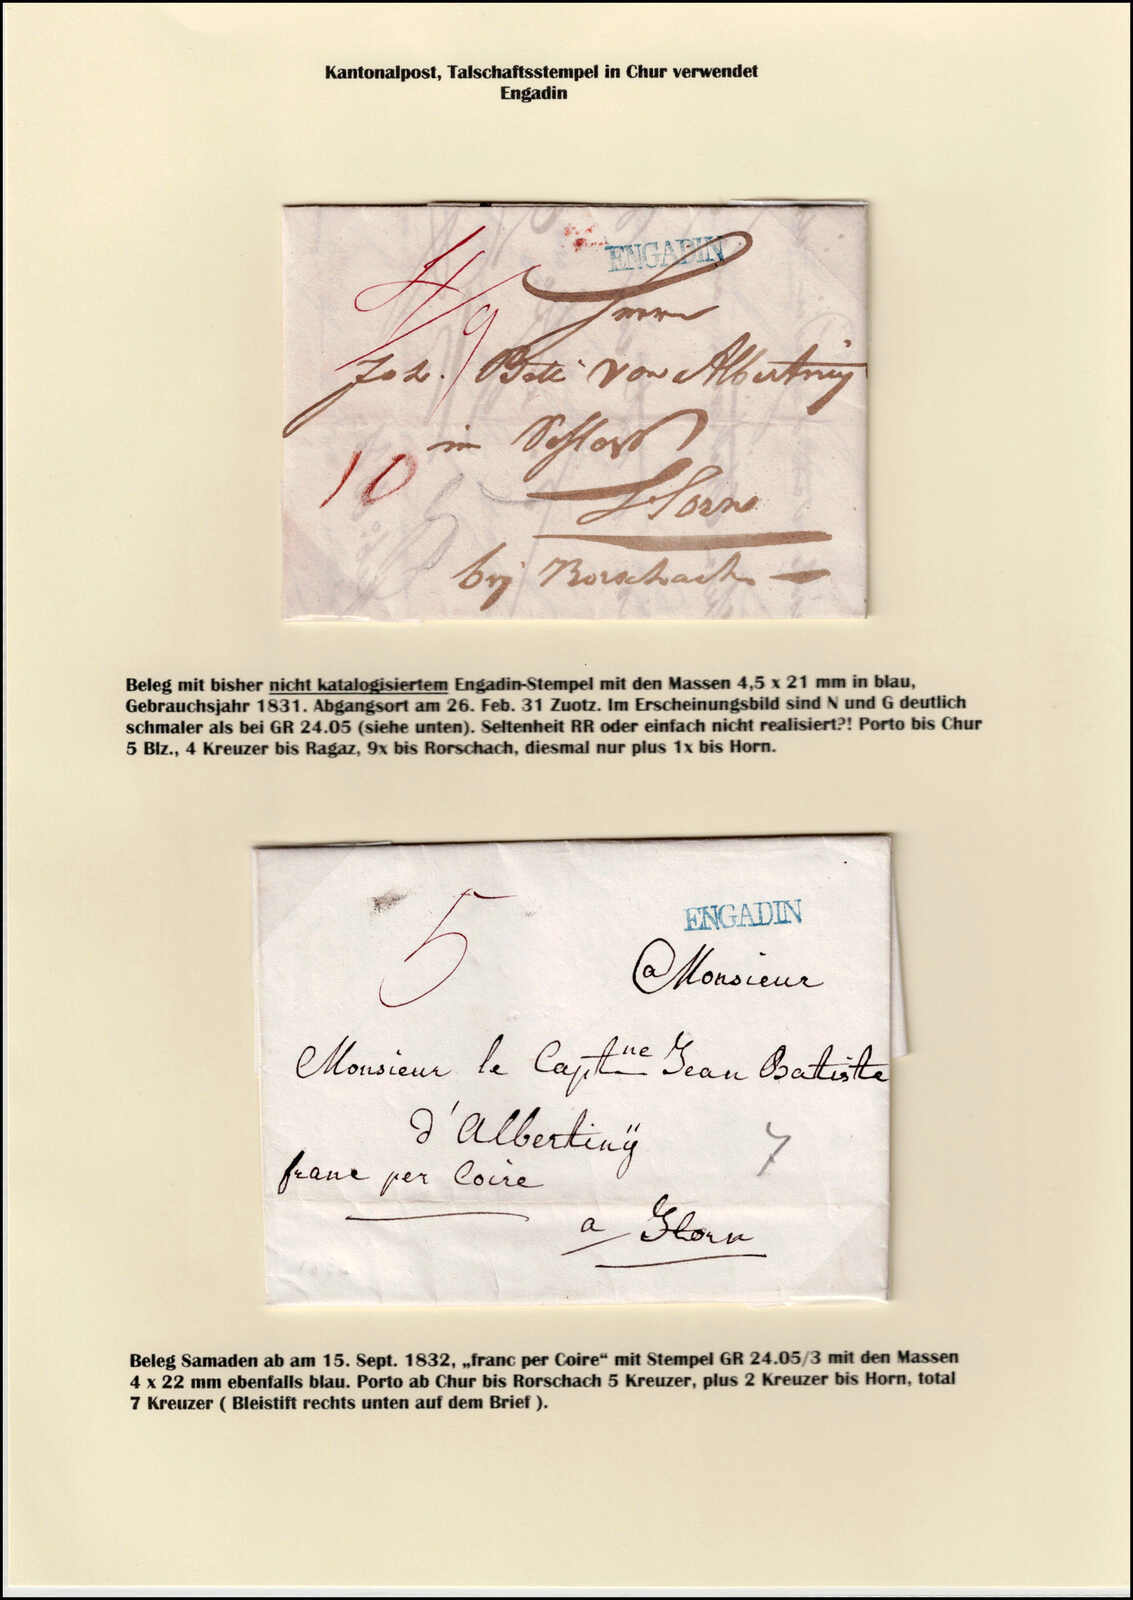 Kantonalpost, Talschaftsstempel in Chur verwendet
Engadin
ENGADIN
4/9
Herrn
Joh. Btt. von Albertiniy
in Schloss
10
Horn
bey Rorschach
Beleg mit bisher nicht katalogisiertem Engadin-Stempel mit den Massen 4,5 x 21 mm in blau,
Gebrauchsjahr 1831. Abgangsort am 26. Feb. 31 Zuotz. Im Erscheinungsbild sind N und G deutlich
schmaler als bei GR 24.05 (siehe unten). Seltenheit RR oder einfach nicht realisiert?! Porto bis Chur
5 Blz., 4 Kreuzer bis Ragaz, 9x bis Rorschach, diesmal nur plus 1x bis Horn.
5
ENGADIN
a Monsieur
Monsieur le Captne Jean Batiste
d'Albertinÿ
7
franc per Coire
a Horn
Beleg Samaden ab am 15. Sept. 1832, „franc per Coire“ mit Stempel GR 24.05/3 mit den Massen
4 x 22 mm ebenfalls blau. Porto ab Chur bis Rorschach 5 Kreuzer, plus 2 Kreuzer bis Horn, total
7 Kreuzer ( Bleistift rechts unten auf dem Brief ).